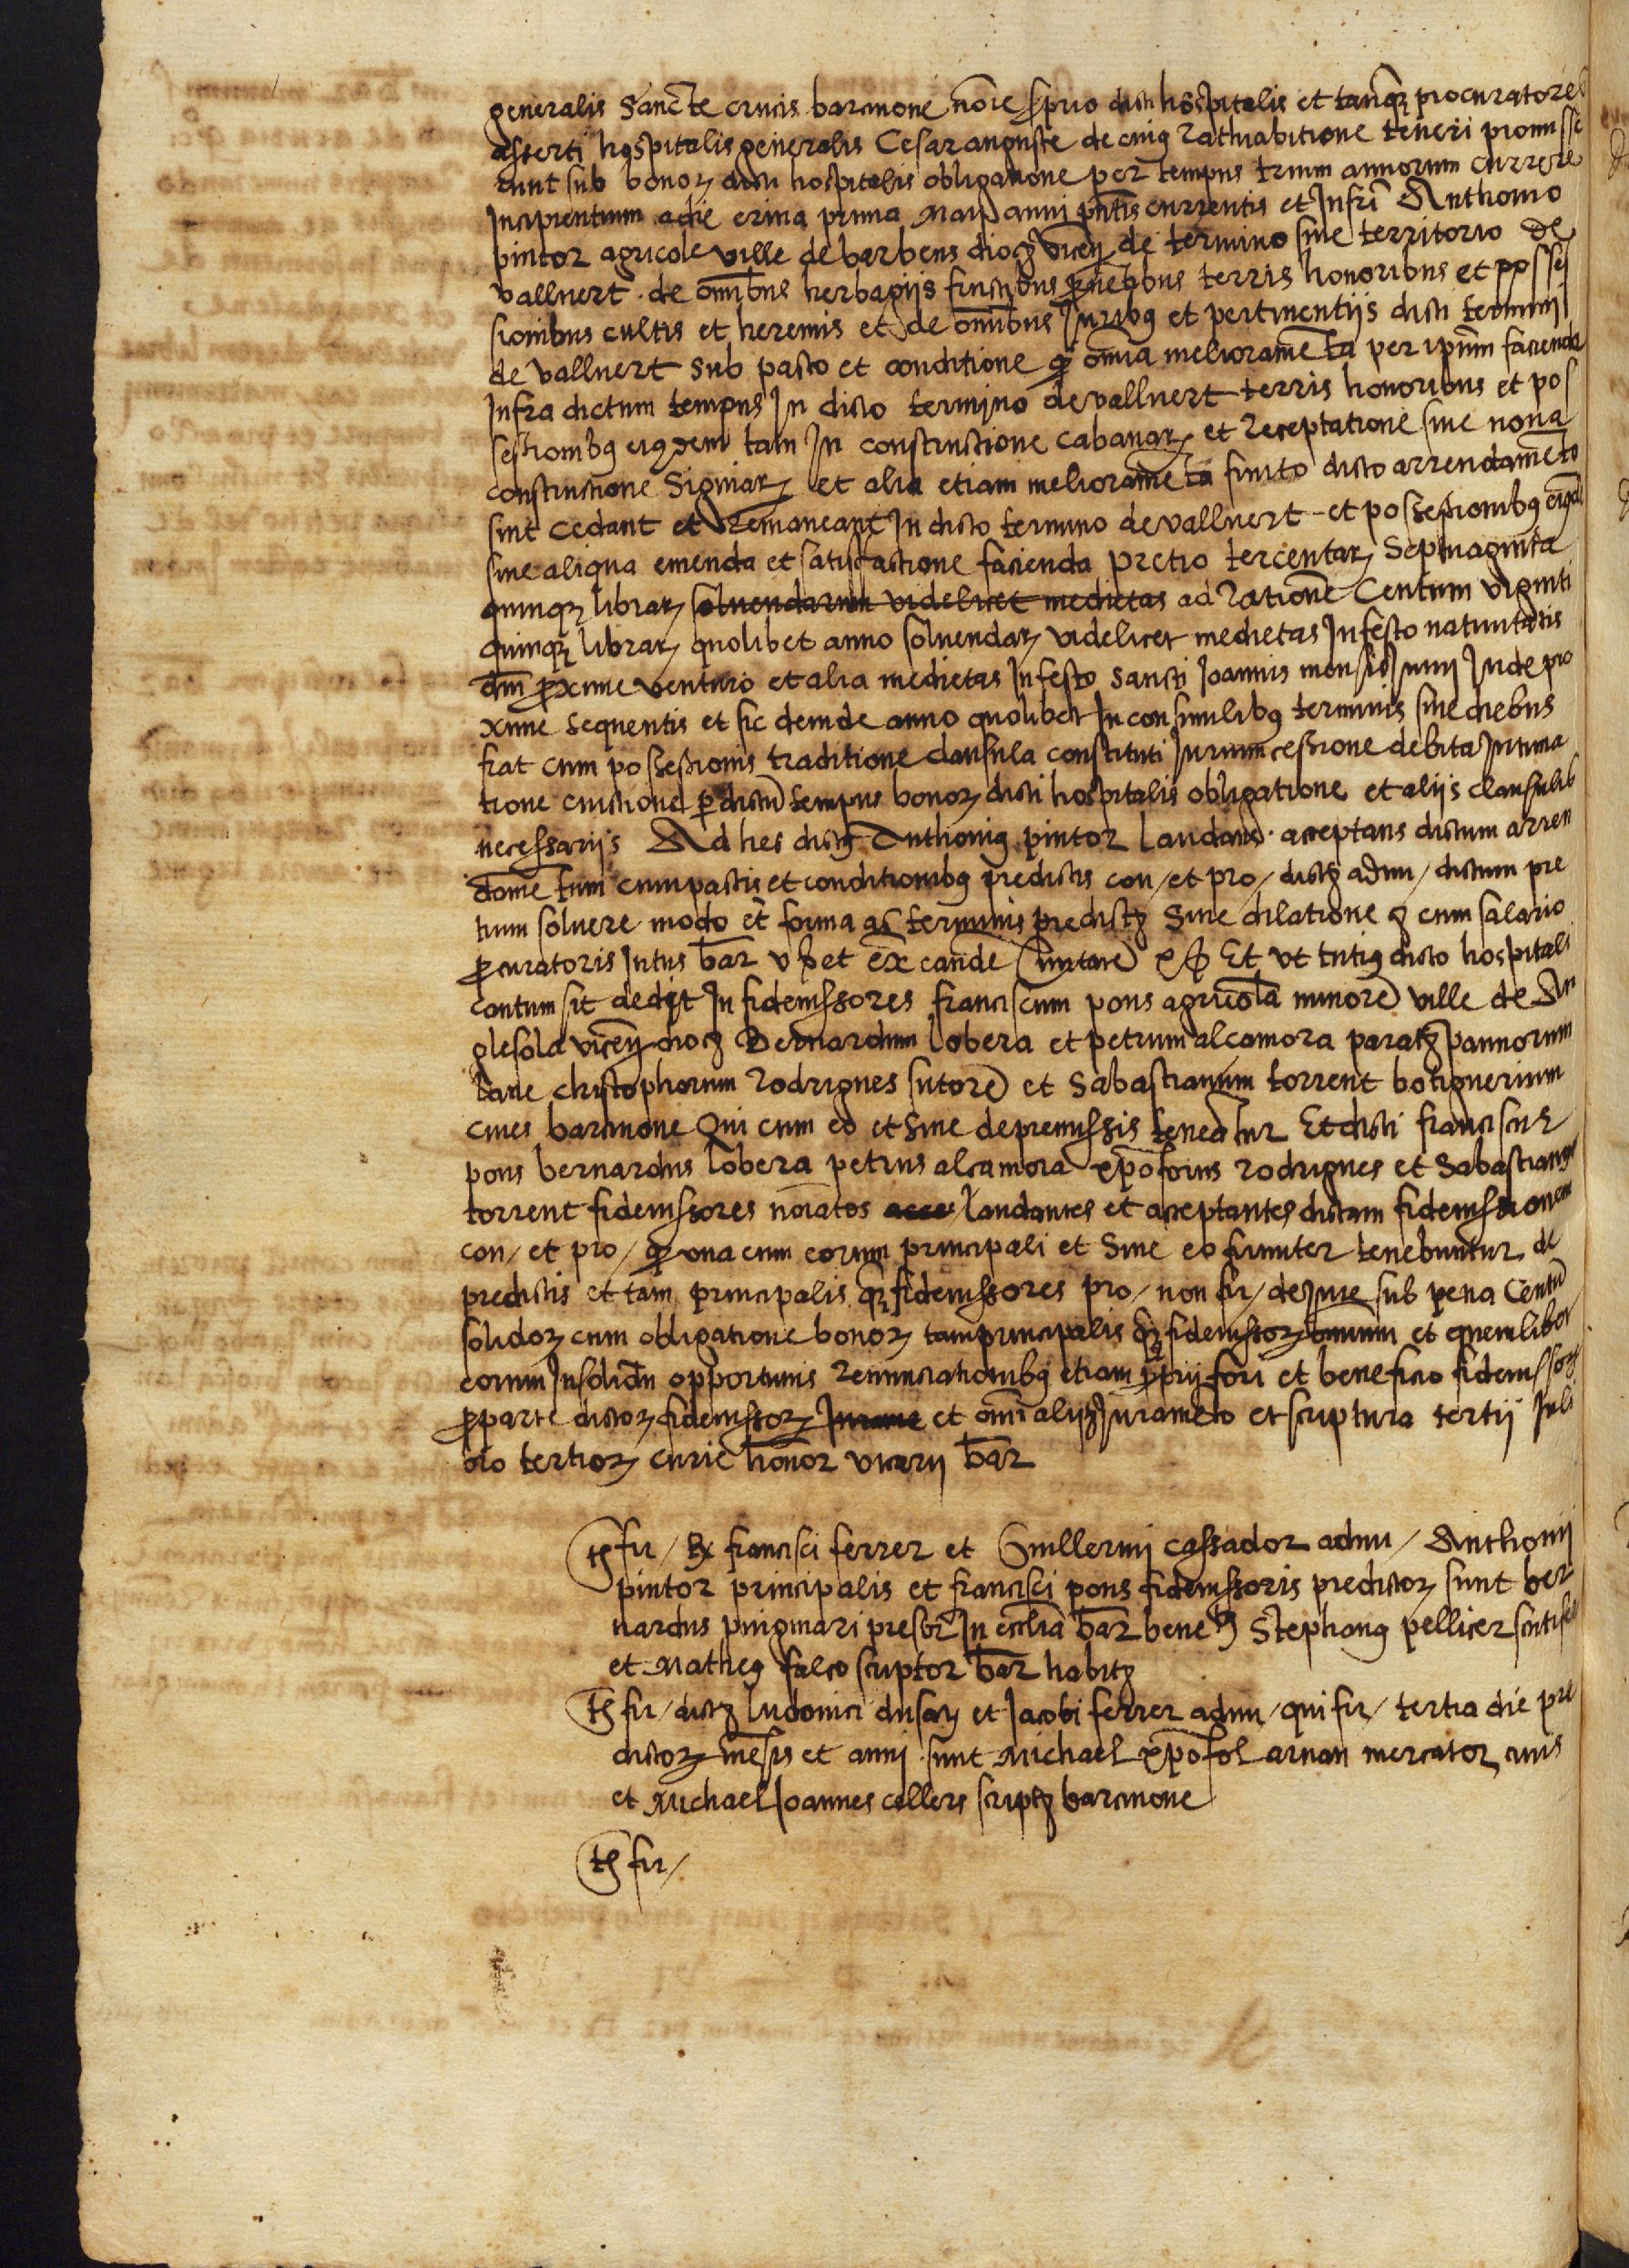 generalis Sancte crucis barcinone noĩe proprio dicti hospitalis et tanq̃ procuratores
asserti hospitalis generalis Cesarauguste de cuius rathiabitione teneri promisse
runt sub bonoꝝ dicti hospitalis obligatione per tempus trium annorum currere
Incipientium a die prima Maij anni pñtis currentis et Infrã Anthonio
pintor agricole ville de barbens dioc̃ Vicẽñ de termino siue territorio de
vallvert de omĩbus herbagijs fructibus terris honoribus et posses
sionibus cultis et heremis et de omĩbus Juribus et pertinentijs dicti termini
de vallvert sub pacto et conditione q̃ omnia meliorameñta per ipũm facienda
Infra dictum tempus In dicto termino de vallvert terris honoribus et pos
sessionibus eiusdem tam In constructione cabanaꝝ et receptatione siue noua
constructione Signiaꝝ et alia etiam meliorameñta finito dicto arrendameñto
sint cedant et remaneant In dicto termino de vallvert et possessionibus eiusdẽ
sine aliqua emenda et satisfactione facienda pretio tercentaꝝ Septuaginta
quinq̃ libraꝝ soluendarum videlicet medietas ad rationẽ Centum viginti
quinq̃ libraꝝ quolibet anno soluendaꝝ videlicet medietas In festo natiuitatis
dñi proxime venturo et alia medietas In festo Sancti Joannis mensis Junij Inde pro
xime sequentis et sic deinde anno quolibet In consimilibus terminis siue diebus
fiat cum possessionis traditione clausula constituti Jurium cessione debita Intima
tione euictione per dictũ tempus bonoꝝ dicti hospitalis obligatione et alijs clausulis
necessarijs Ad hec dictus Anthonius pintor laudans acceptans dictum arren
dameñtum cum pactis et conditionibus predictis con/ et pro/ dictis admi/ dictum pre
tium soluere modo et forma ac terminis predictis sine dilatione &c cum salario
procuratoris Intus bar̃ v ß et ex̃ Et vt tutius dicto hospitali
cautum sit dedit In fideiussores franciscum pons agricola minorẽ ville de An
glesola vicẽñ dioc̃ Bernardum lobera et petrum alcamora paratores pannorum
lane christophorum rodrigues sutorẽ et Sabastianum torrent botiguerium
ciues barcinone Qui cum eo et sine de premissis teneañtur Et dicti franciscus
pons bernardus lobera petrus alcamora xp̃ofoius rodrigues et Sabastianus
torrent fideiussores noĩatos acce laudantes et acceptantes dictam fideiussionem
con/ et pro/ q̃ vna cum eorum principali et sine eo firmiter tenebuntur de
predictis et tam principalis q̃ fideiussores pro/ non fir/ de Jure sub pena Centũ
solidoꝝ cum obligatione bonoꝝ tam principalis q̃ fideiussoꝝ omnium et quemlibet
eorum Insolidũ opportunis renunciationibus etiam proprij fori et beneficio fideiussoꝝ
pro parte dictoꝝ fideiussoꝝ Jurame et omĩ alijs Jurameñto et scriptura tertij Inli
bro tertioꝝ curie honor̃ vicarij bar̃
Ts̃ fir/ Rx francisci ferrer et Guillermi cassador admi/ Anthonij
pintor principalis et francisci pons fideiussoris predictoꝝ sunt ber
nardus puigmari presbr̃ In ecclia bar̃ beneẽ Stephanus pellicer scutifer
et Matheus falco scriptor bar̃ habitẽs
Ts̃ fir/ dictis ludouici dusay et Jacobi ferrer admi/ qui fir/ tertia die pre
dictoꝝ mẽsis et anni sunt Michael xp̃ofol arnau mercator ciuis
et Michael Joannes cellers scriptẽs barcinone
Ts̃ fir/